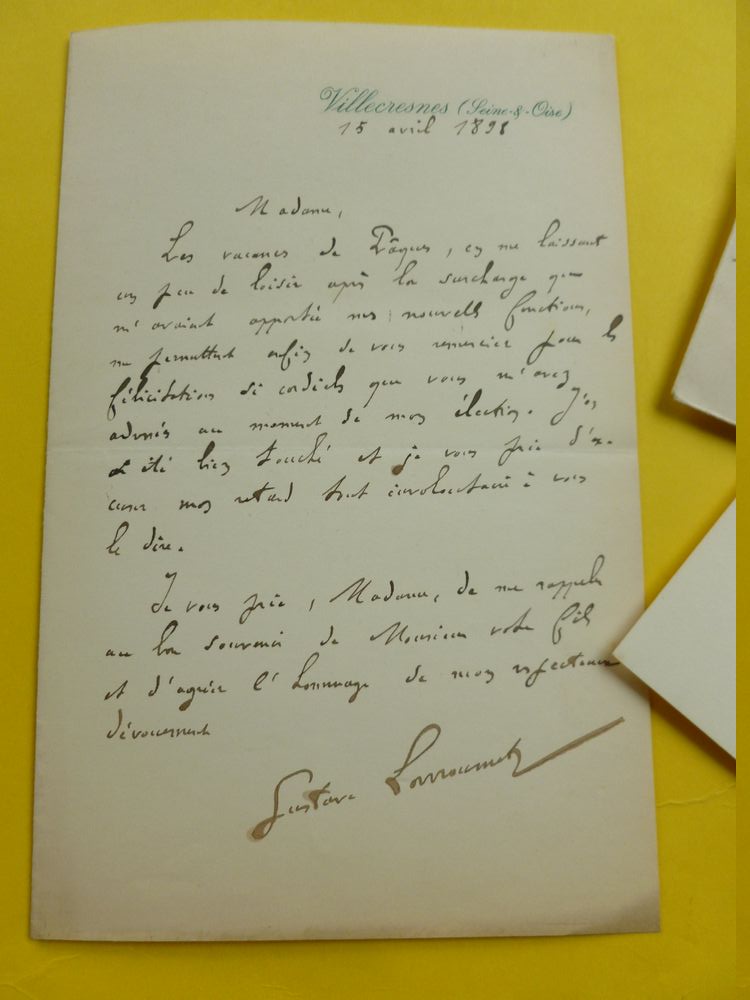 Villecresnes (Seine-&-Oise)
15 avril 1898
Madame,
Les vacances de Pâques, en me laissant
un peu de loisir après la surcharge que
m'avaient apportée mes nouvelles fonctions,
me permettent enfin de vous remercier pour les
félicitations si cordiales que vous m'avez
adressées au moment de mon élection. J'en
ai été bien touché et je vous prie d'ex-
cuser mon retard tout involontaire à vous
le dire.
Je vous prie, Madame, de me rappeler
au bon souvenir de Monsieur votre fils
et d'agréer l'hommage de mon respectueux
dévouement
Gustave Larroumet